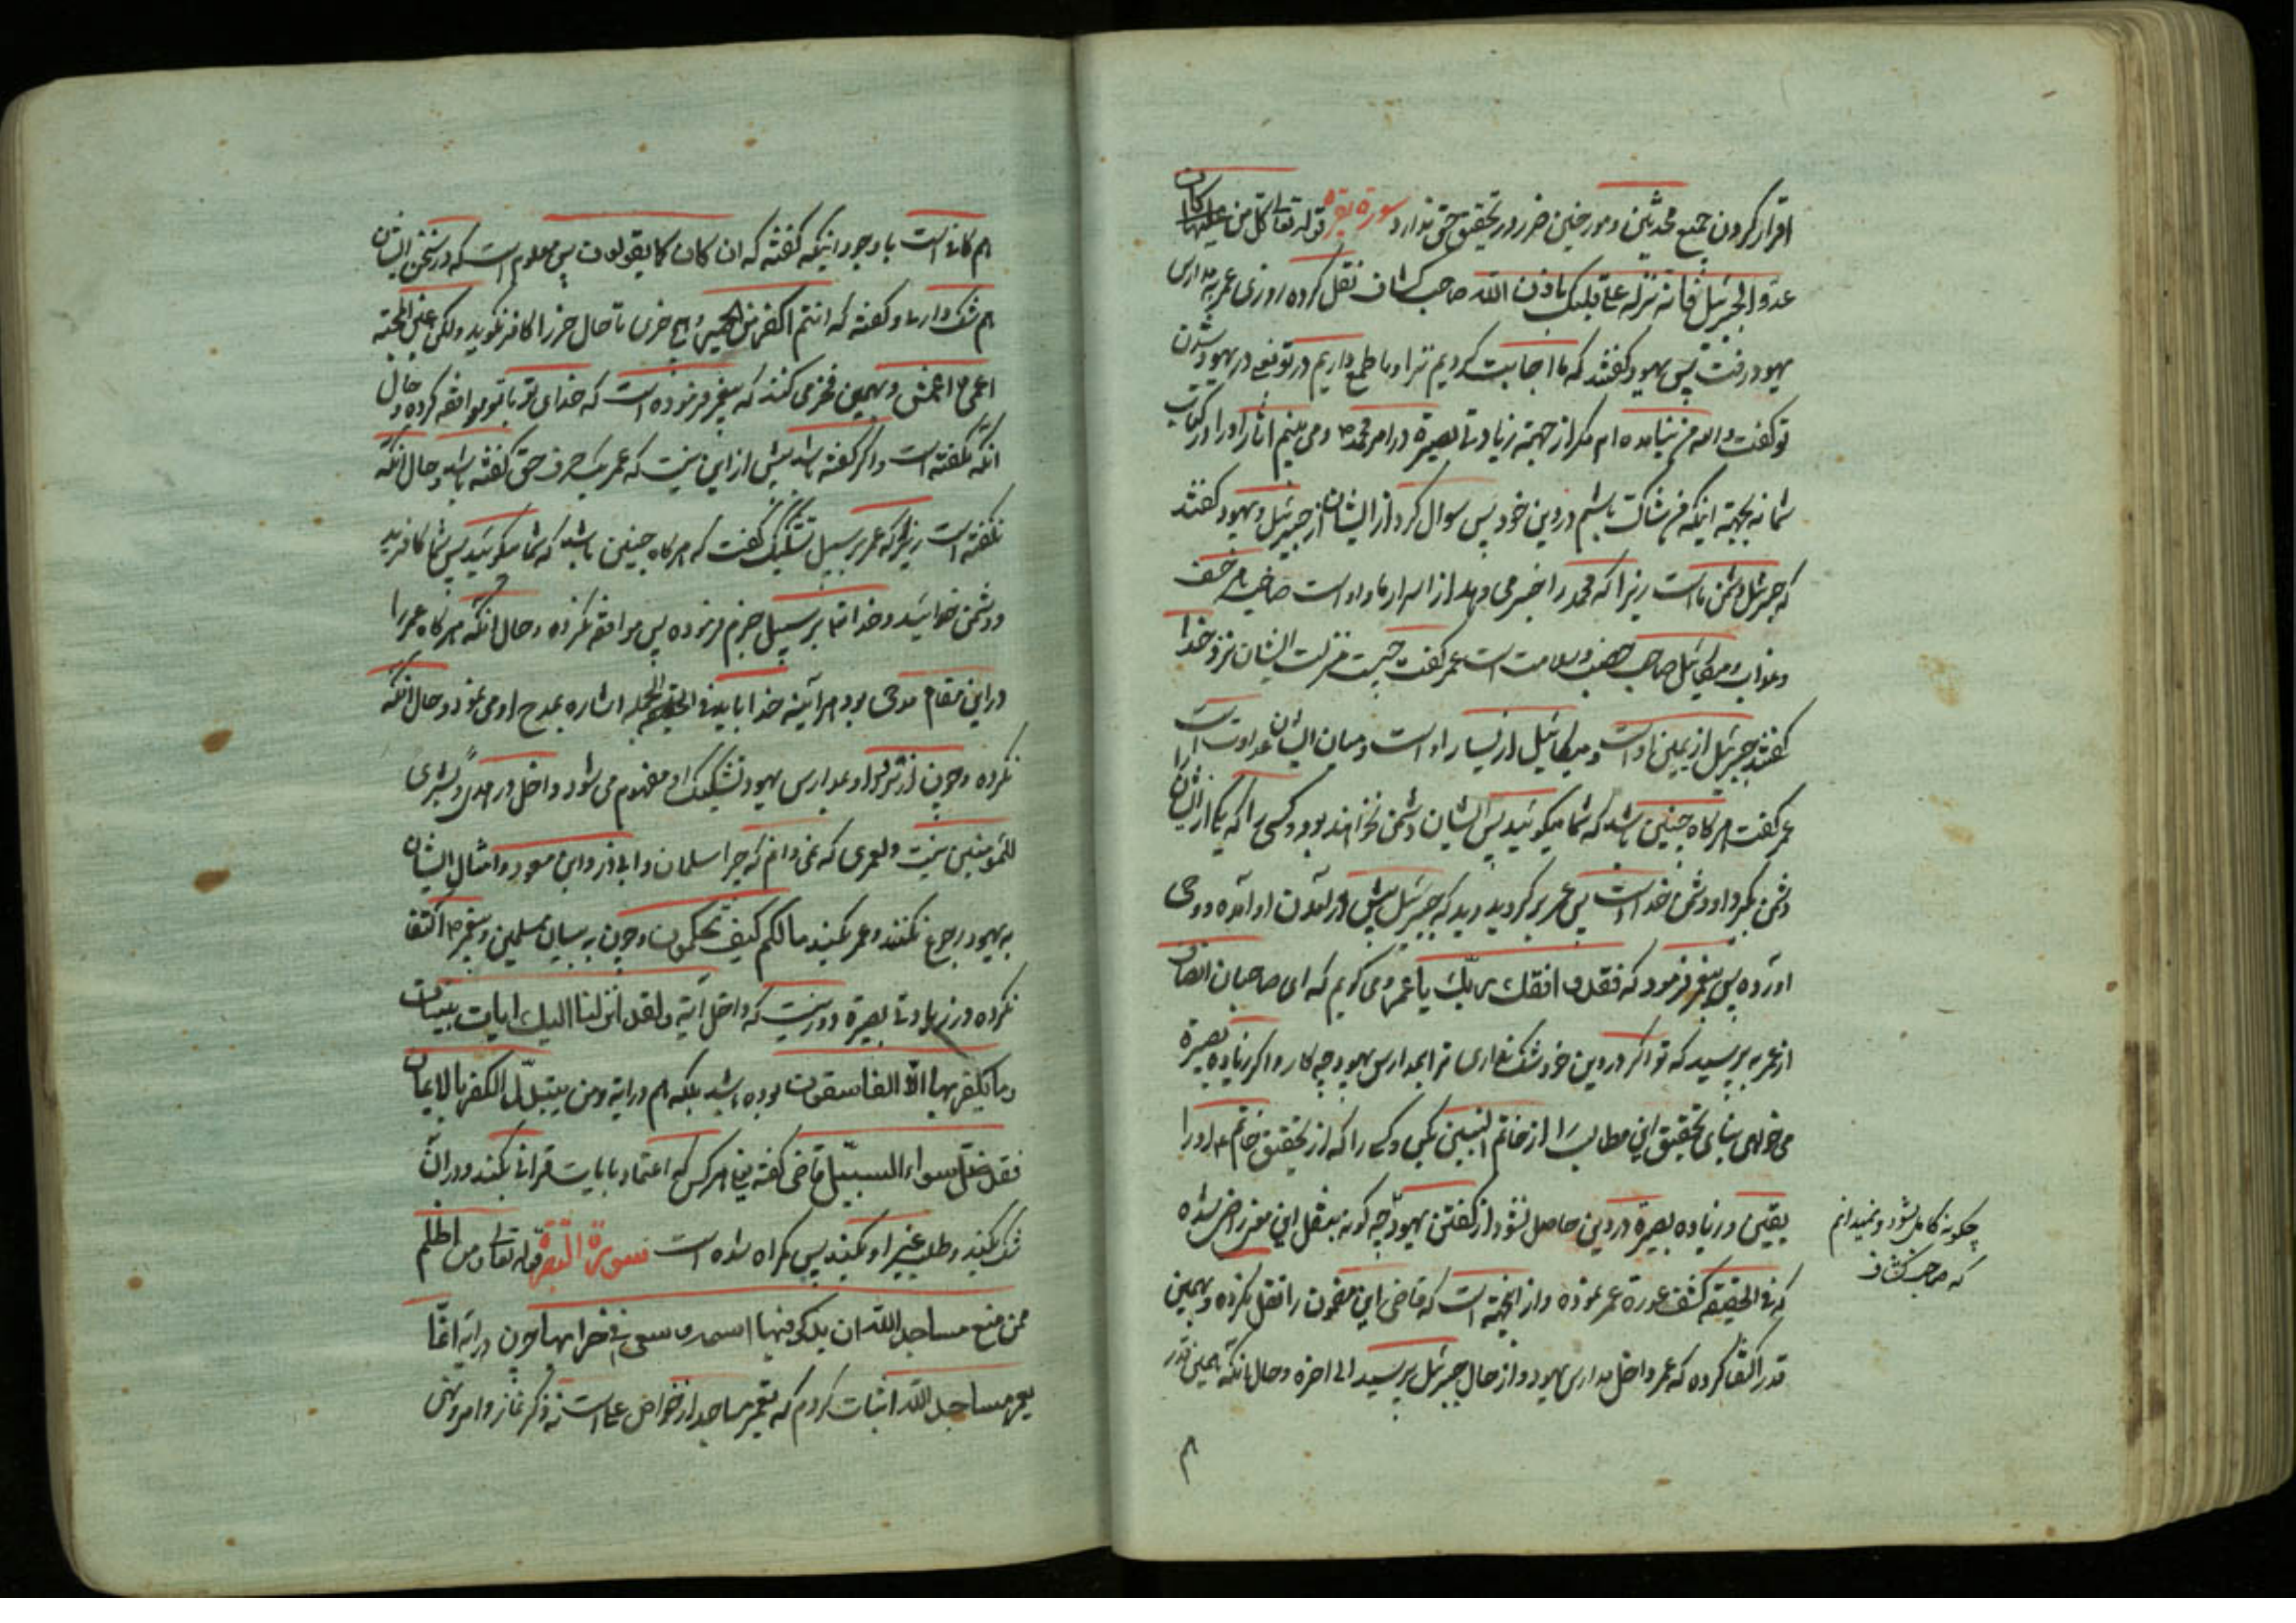 اقرار کردن جمیع محدثین و مورخین ضرر در تحقیق حق ندارد سورة بقره قوله تعالی قل من کان
عدوا لجبرئیل فانه نزله علی قلبک باذن الله صاحب کشاف نقل کرده روزی عمر بمدارس
یهود رفت پس یهود کفتند که ما اجابت کردیم ترا و ما طمع داریم در تو یعنی در یهود شدن
تو کفت والله من نیامده ام مکر از جهة زیادتی بصیرة در امر محمد ص و می بینم اثار او را در کتاب
شما نه بجهة اینکه من شاک باشم در دین خود پس سوال کرد از ایشان از جبرئیل و یهود کفتند
که جبرئیل دشمن ماست زیرا که محمد را خبر می دهد از اسرار ما و او است صاحب هر خسف
و عذاب و میکائیل صاحب خصب و سلامت است عمر کفت چیست منزلت ایشان نزد خدا
کفتند جبرئیل از یمین او است و میکائیل از یسار او است و میان ایشان عداوت است
عمر کفت هر کاه چنین باشد که شما میکوئید پس ایشان دشمن نخواهند بود و کسی را که یکی از ایشان را
دشمن بکیرد او دشمن خداست پس عمر بر کردید دید که جبرئیل پیش از آمدن او آمده و وحی
اورده پس پیغمبر فرمود که فقد وافقک ربک یا عمر و می کویم که ای صاحبان انصاف
از عمر به پرسید که تو اکر در دین خود شک نداری ترا بمدارس یهود چه کار و اکر زیاده بصیرة
می خواهی بیای تحقیق این مطالب را از خاتم النبیین بکن و کسی را که از تحقیق خاتم ص او را
یقین و زیاده بصیرة در دین حاصل نشود از کفتن یهود چه کونه بنقل این راضی شده
که فی الحقیقه کشف عورة عمر نموده و از اینجهة است که قاضی این مضمون را نقل نکرده و بهمین
قدر اکتفا کرده که عمر داخل مدارس یهود و از حال جبرئیل پرسید الی اخره و حال آنکه همین قدر
چکونه کامل شود و نمیدانم
که صاحب کشاف
هم کافی است با وجود اینکه کفته که ان کان کما یقولون پس معلوم است که در سخن ایشان
هم شک دارد و کفته که انتم اکفر من الحمیر و هیچ خری تا حال خر را کافر نکوید ولکن عین المحبة
اعمی و اعمش و بهمین فخر می کنند که پیغمبر فرموده است که خدای تو با تو موافقه کرده و حال
آنکه نکفته است و اکر کفته باشد بیش از این نیست که عمر یک حرف حق کفته باشد و حال آنکه
نکفته است زیرا که عمر بر سبیل تشکیک کفت که هر کاه چنین باشد که شما میکوئید پس شما کافرید
و دشمن خدائید و خداتعا بر سبیل جزم فرموده پس موافقه نکرده و حال آنکه هر کاه عمر را
در این مقام مدحی بود هر آینه خدا باید فی الجمله اشاره بمدح او می نمود و حال آنکه
نکرده و چون از تردد او بمدارس یهود تشکیک او مفهوم می شود داخل در هدی و بشری
للمؤمنین نیست ولعمری که نمی دانم که چرا سلمان و ابی ذر و ابن مسعود و امثال ایشان
به یهود رجوع نکنند و عمر بکند مالکم کیف تحکمون و چون به بیان مسلمین و پیغمبر ص اکتفا
نکرده در زیادتی بصیرة دور نیست که داخل آیه ولقد انزلنا الیک ایات بینات
وما یکفر بها الا الفاسقون بوده باشد بلکه هم در ایه ومن یتبدل الکفر بالایمان
فقد ضل سواء السبیل قاضی کفته یعنی هر کس که اعتماد بایات قرانی نکند و در ان
شک بکند و طلب غیر او بکند پس کمراه شده است سورة البقرة قوله تعالی ومن اظلم
ممن منع مساجد الله ان یذکر فیها اسمه وسعی فی خرابها چون در ایه انما
یعمر مساجد الله اثبات کردم که تعمیر مساجد از خواص علی است نه ذکر نماز و امر و نهی